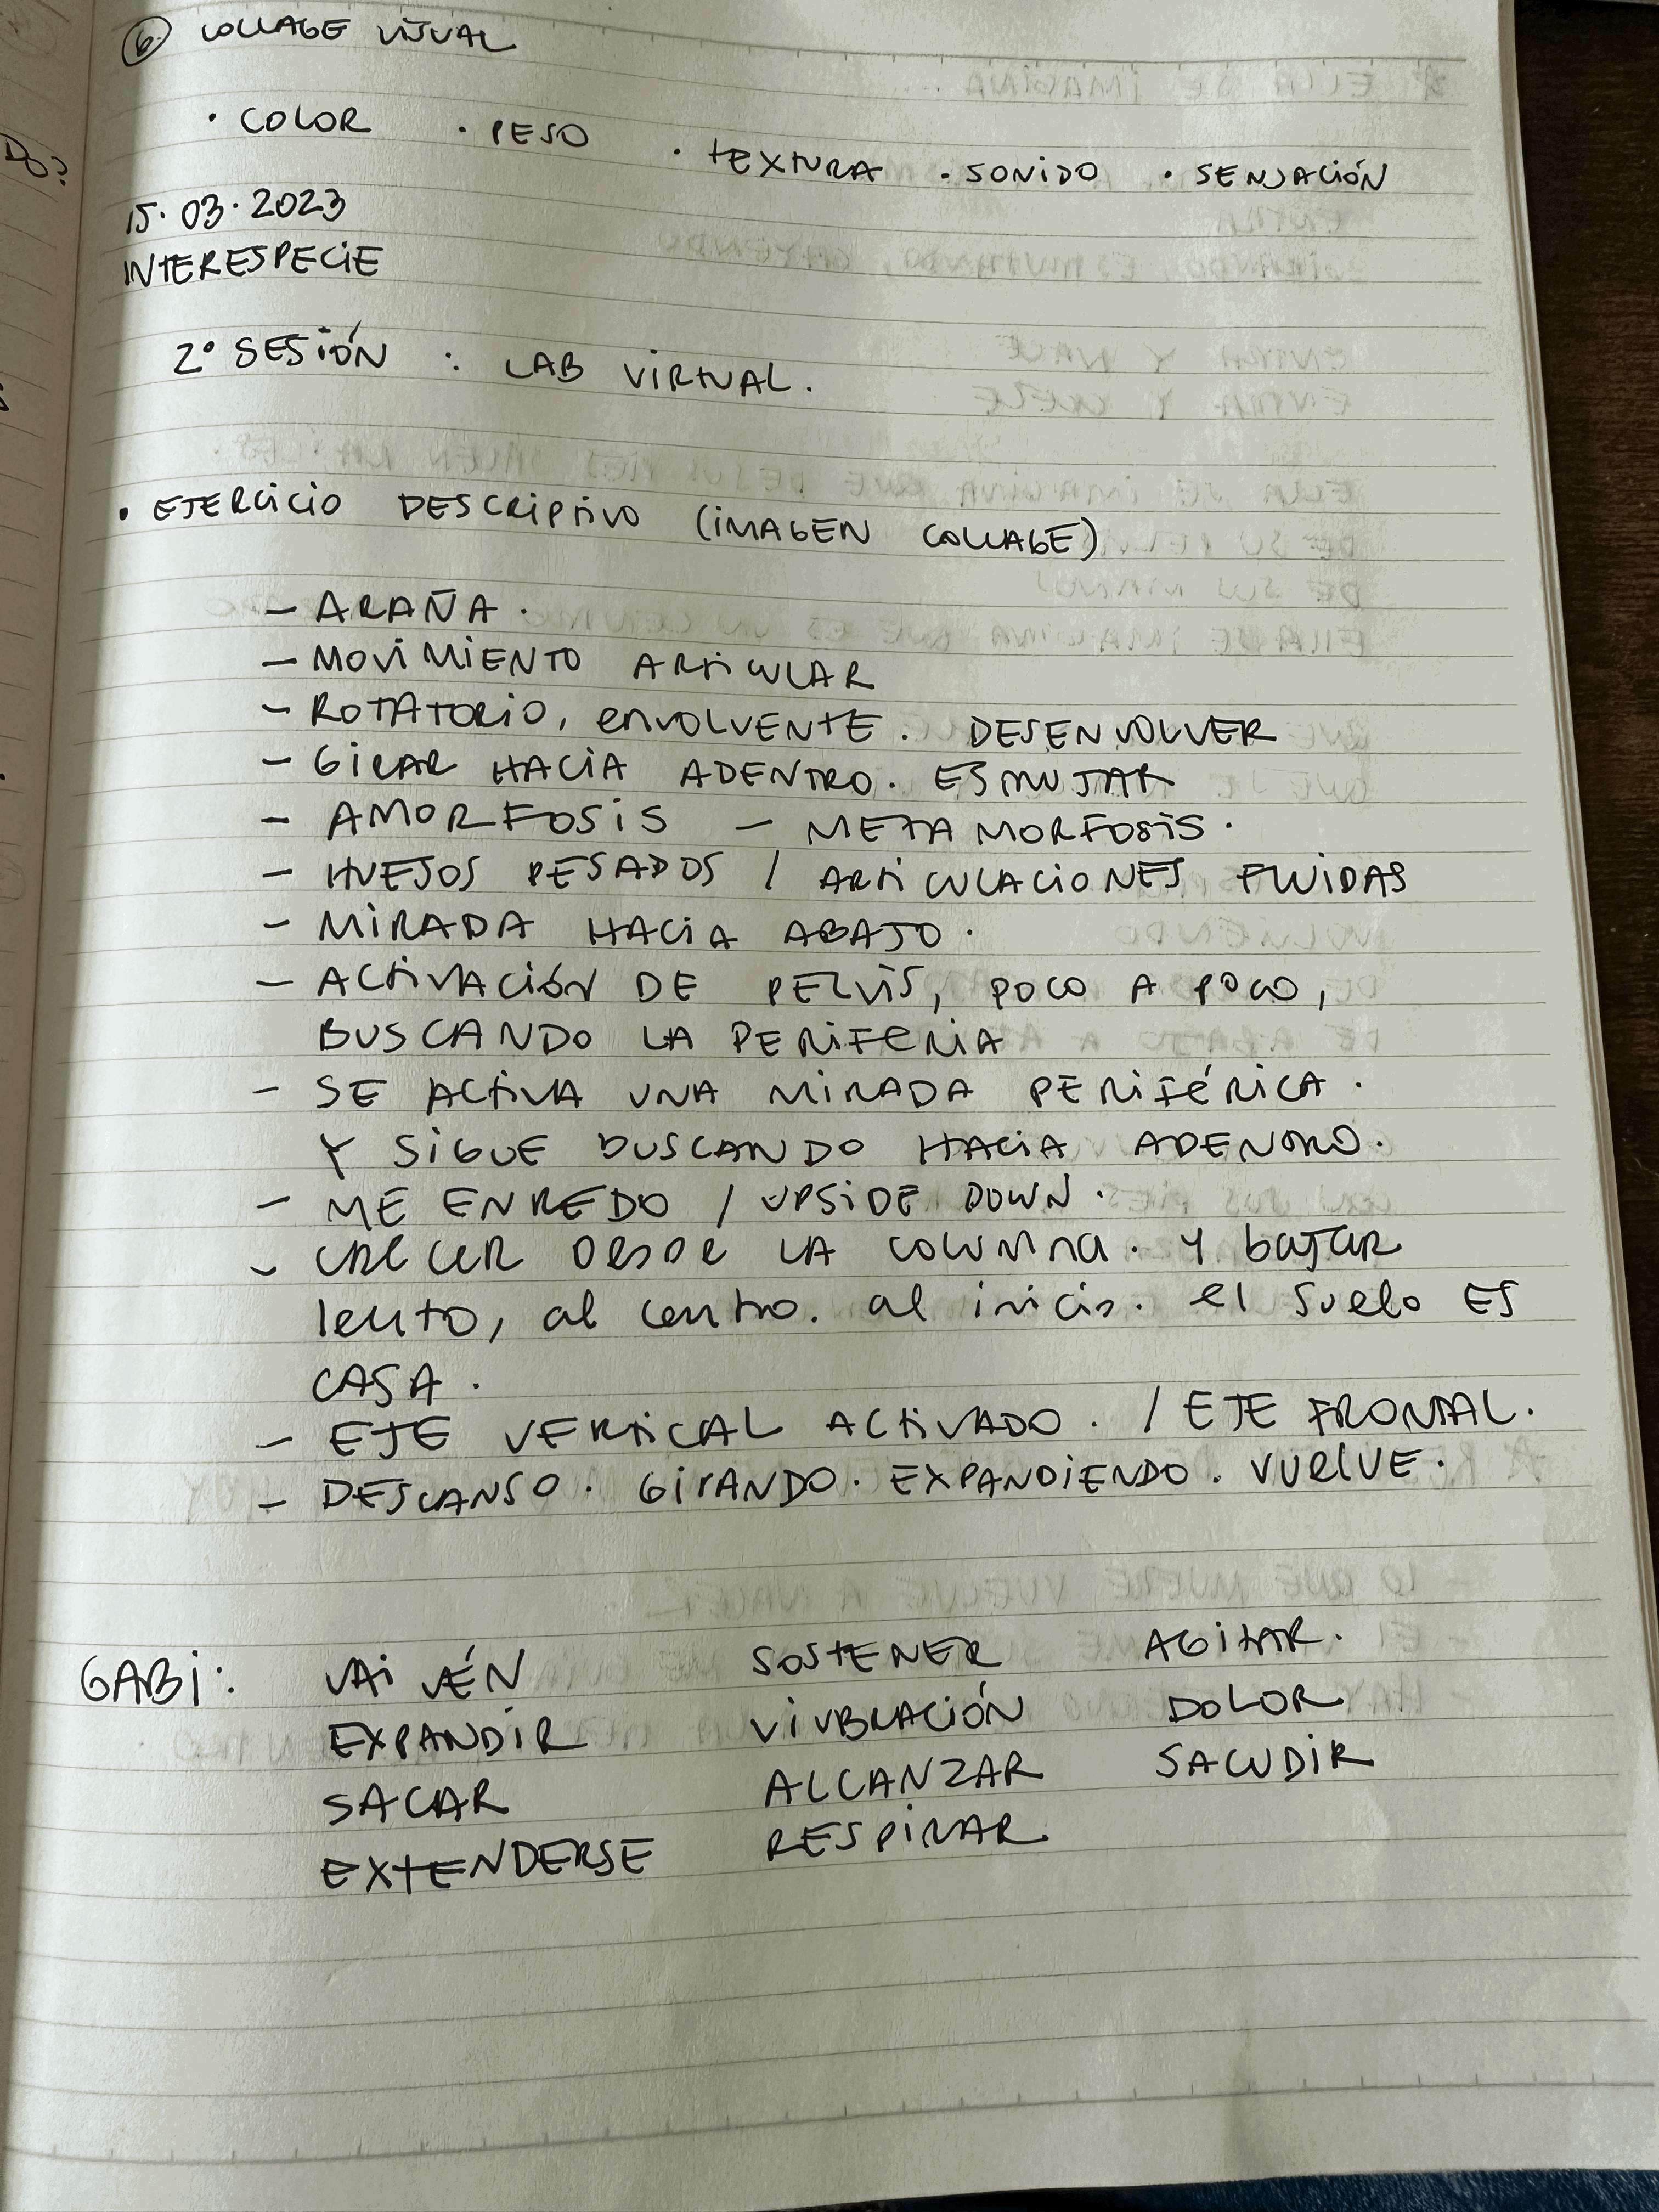 ⑥ COLLAGE VISUAL
· COLOR · PESO · TEXTURA · SONIDO · SENSACIÓN
15·03·2023
INTERESPECIE
2° SESIÓN : LAB VIRTUAL.
· EJERCICIO DESCRIPTIVO (IMAGEN COLLAGE)
– ARAÑA.
– MOVIMIENTO ARTICULAR
– ROTATORIO, ENVOLVENTE. DESENVOLVER
– GIRAR HACIA ADENTRO. ESTRUJAR
– AMORFOSIS – METAMORFOSIS.
– HUESOS PESADOS / ARTICULACIONES FLUIDAS
– MIRADA HACIA ABAJO.
– ACTIVACIÓN DE PELVIS, POCO A POCO,
BUSCANDO LA PERIFERIA
– SE ACTIVA UNA MIRADA PERIFÉRICA.
Y SIGUE BUSCANDO HACIA ADENTRO.
– ME ENREDO / UPSIDE DOWN.
– CRECER DESDE LA COLUMNA. Y bajar
lento, al centro. al inicio. el suelo ES
CASA.
– EJE VERTICAL ACTIVADO. / EJE FRONTAL.
– DESCANSO. GIRANDO. EXPANDIENDO. VUELVE.
GABI: VAI VÉN SOSTENER AGITAR.
EXPANDIR VIVBRACIÓN DOLOR
SACAR ALCANZAR SACUDIR
EXTENDERSE RESPIRAR